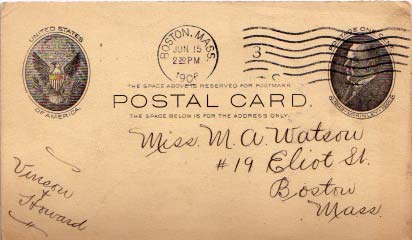 UNITED STATES
OF AMERICA
BOSTON, MASS.
JUN 15
2-30 PM
1906
3
POSTAGE ONE CENT
THE SPACE ABOVE IS RESERVED FOR POSTMARK.
POSTAL CARD.
THE SPACE BELOW IS FOR THE ADDRESS ONLY.
Miss. M. A. Watson
#19 Eliot St.
Boston
Mass.
Vinson
&
Howard